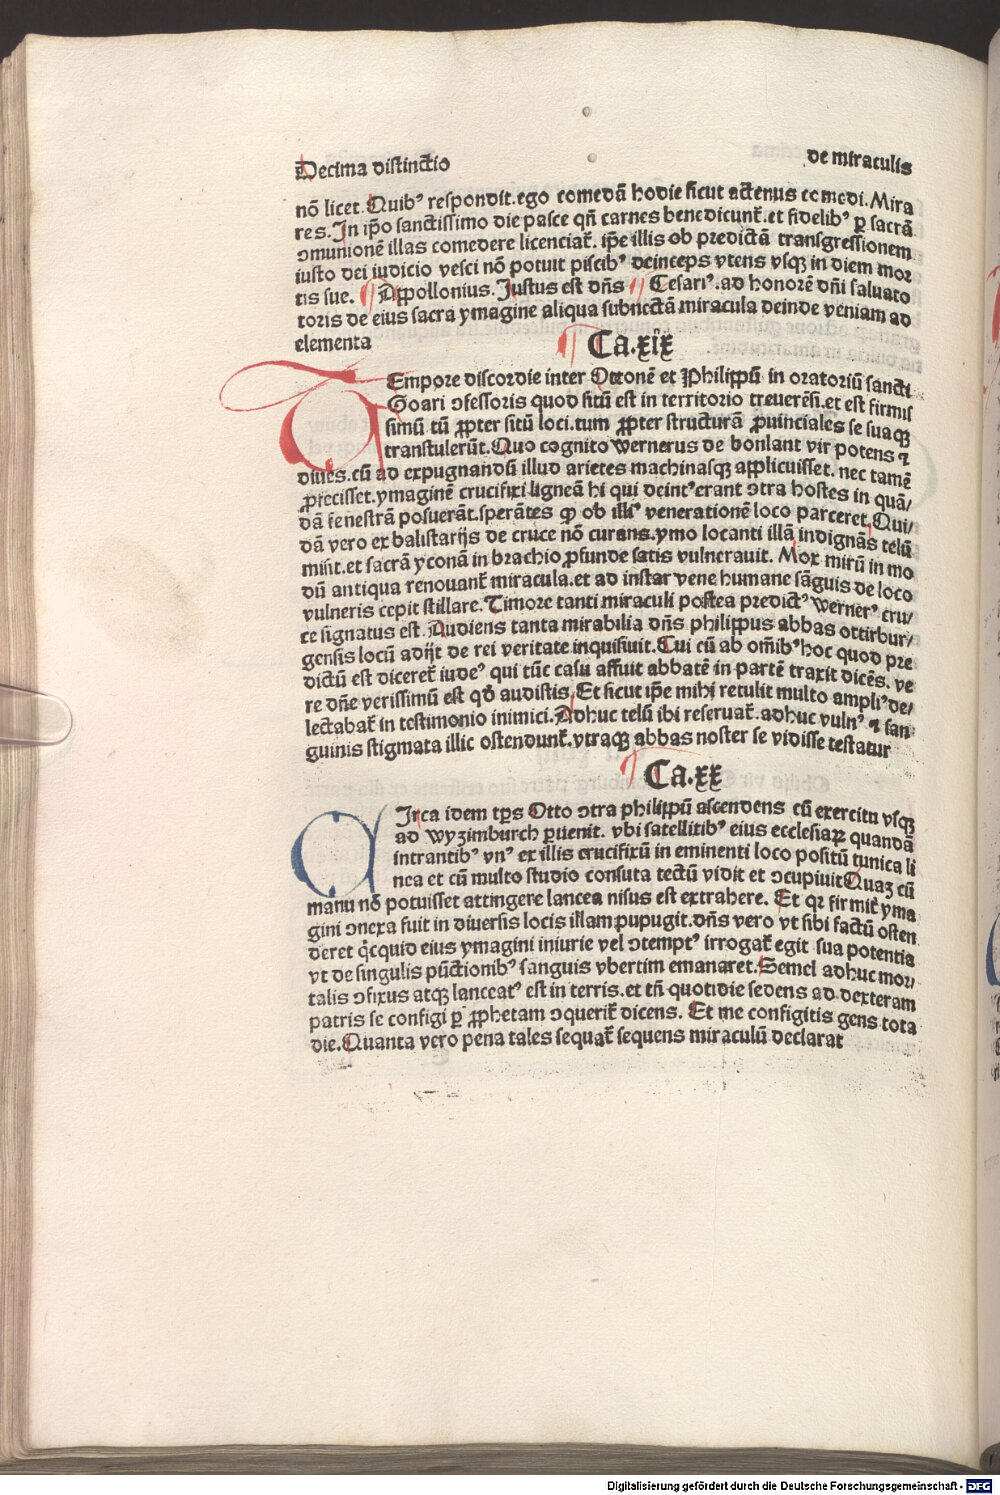 Decima distinctio de miraculis
nõ licet. Quibꝰ respondit. ego comedã hodie sicut actenus comedi. Mira
res. In ip̃o sanctissimo die pasce qñ carnes benedicunt̃. et fidelibꝰ ꝑ sacrã
ↄmunionẽ illas comedere licenciat̃. ip̃e illis ob predictã transgressionem
iusto dei iudicio vesci nõ potuit piscibꝰ deinceps vtens vsqꝫ in diem mor
tis sue. ¶ Appollonius. Justus est dñs ¶ Cesariꝰ. ad honorẽ dñi saluato
toris de eius sacra ymagine aliqua subnectã miracula deinde veniam ad
elementa ¶ Ca. xix
Tempore discordie inter Ottonẽ et Philippũ in oratoriũ sancti
Goari ↄfessoris quod sitũ est in territorio treuerẽsi. et est firmis
simũ tũ ꝓpter sitũ loci. tum ꝓpter structurã ꝓuinciales se suaqꝫ
transtulerũt. Quo cognito wernerus de bonlant vir potens ⁊
diues. cũ ad expugnandũ illud arietes machinasqꝫ applicuisset. nec tamẽ
ꝓfecisset. ymaginẽ crucifixi ligneã hi qui deintꝰerant ↄtra hostes in quã/
dã fenestrã posuerãt. sperãtes ꝙ ob illiꝰ venerationẽ loco parceret. Qui/
dã vero ex balistarijs de cruce nõ curans. ymo locanti illã indignãs telũ
misit. et sacrã yconã in brachio ꝓfunde satis vulnerauit. Mox mirũ in mo
dũ antiqua renouant̃ miracula. et ad instar vene humane sãguis de loco
vulneris cepit stillare. Timore tanti miraculi postea predictꝰ wernerꝰ cru/
ce signatus est. Audiens tanta mirabilia dñs philippus abbas ottirbur/
gensis locũ adijt de rei veritate inquisiuit. Cui cũ ab om̃ibꝰ hoc quod pre
dictũ est diceret̃ iudeꝰ qui tũc casu affuit abbatẽ in partẽ traxit dicẽs. ve
re dñe verissimũ est qđ audistis. Et sicut ip̃e mihi retulit multo ampliꝰ de/
lectabat̃ in testimonio inimici. Adhuc telũ ibi reseruat̃. adhuc vulnꝰ ⁊ san
guinis stigmata illic ostendunt̃. vtraqꝫ abbas noster se vidisse testatur
¶ Ca. xx
CIrca idem tp̃s Otto ↄtra philippũ ascendens cũ exercitu vsqꝫ
ad wyzimburch ꝑuenit. vbi satellitibꝰ eius ecclesiaꝝ quandã
intrantibꝰ vnꝰ ex illis crucifixũ in eminenti loco positũ tunica li
nea et cũ multo studio consuta tectũ vidit et ↄcupiuit Quaꝫ cũ
manu nõ potuisset attingere lancea nisus est extrahere. Et qꝛ firmit̃ yma
gini ↄnexa fuit in diuersis locis illam pupugit. dñs vero vt sibi factũ osten
deret q̇cquid eius ymagini iniurie vel ↄtemptꝰ irrogat̃ egit sua potentia
vt de singulis pũctionibꝰ sanguis vbertim emanaret. Semel adhuc mor/
talis ↄfixus atqꝫ lanceatꝰ est in terris. et tñ quotidie sedens ad dexteram
patris se configi ꝑ ꝓphetam ↄquerit̃ dicens. Et me configitis gens tota
die. Quanta vero pena tales sequat̃ sequens miraculũ declarat
Digitalisierung gefördert durch die Deutsche Forschungsgemeinschaft - DFG